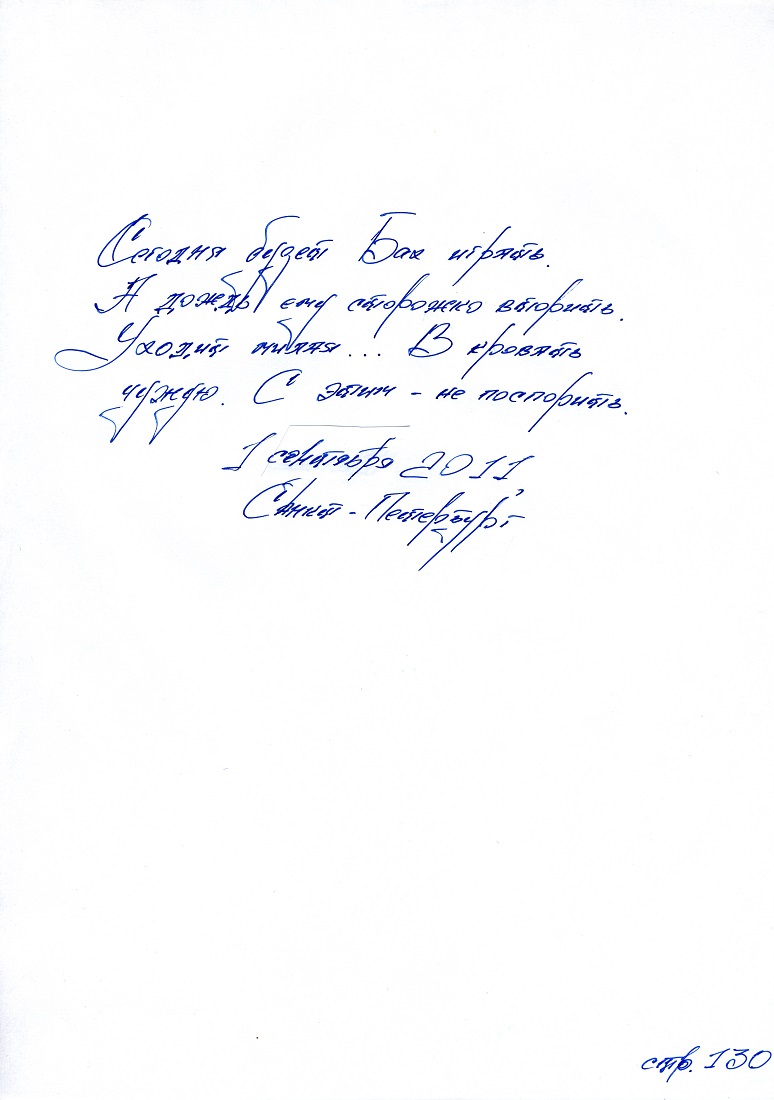 Сегодня будет Бах играть.
А дождь ему сторожко вторить.
Уходит милая... В кровать
чужую. С этим - не поспорить.
1 сентября 2011,
Санкт-Петербург
стр. 130